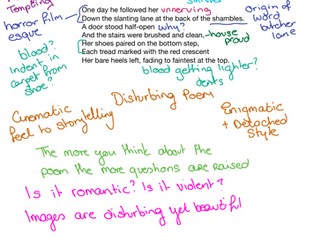 Tempting
unnerving
horror film
esque
One day he followed her
Down the slanting lane at the back of the shambles.
A door stood half-open why?
And the stairs were brushed and clean,
Her shoes paired on the bottom step,
Each tread marked with the red crescent
Her bare heels left, fading to faintest at the top.
house
proud
origin of
word
butcher
lane
blood?
Indent in
carpet from
shoe?
blood getting lighter?
dents
Disturbing Poem
Cinematic
feel to storytelling
Enigmatic
+ Detached
Style
The more you think about the
poem the more questions are raised
Is it romantic? Is it violent?
Images are disturbing yet beautiful